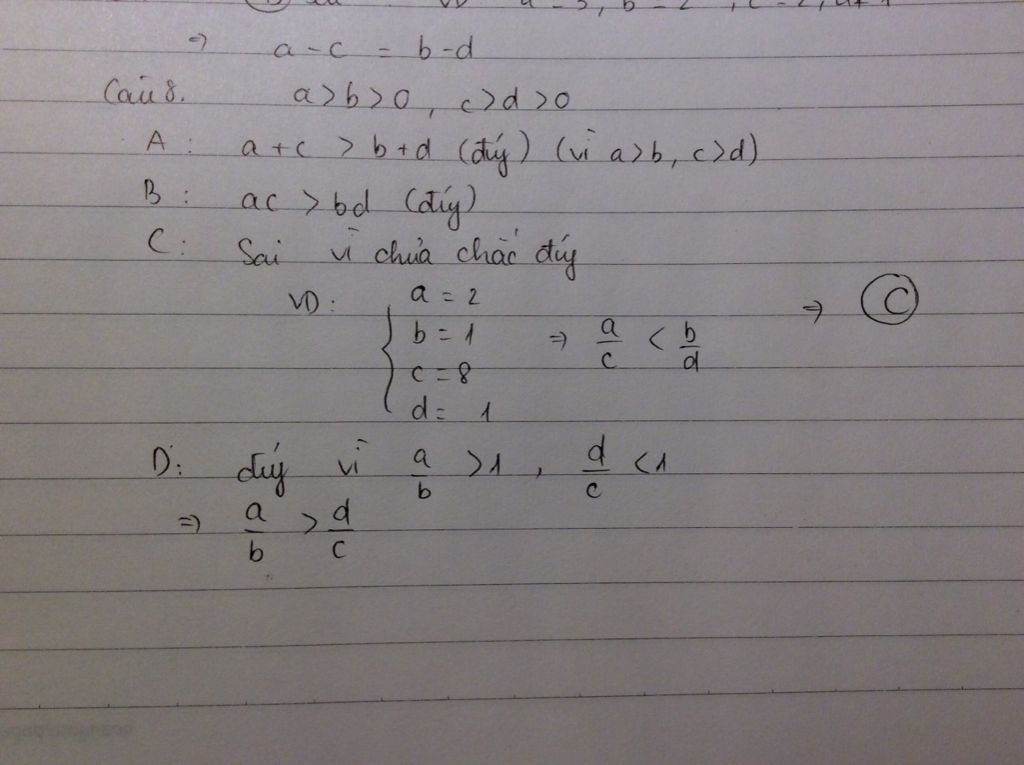 ⇒ a - c = b - d
Câu 8. a > b > 0, c > d > 0
A: a + c > b + d (đúg) (vì a > b, c > d)
B: ac > bd (đúg)
C: Sai vì chưa chắc đúg
VD: a = 2
b = 1 ⇒ a/c < b/d ⇒ C
c = 8
d = 1
D: đúg vì a/b > 1, d/c < 1
⇒ a/b > d/c